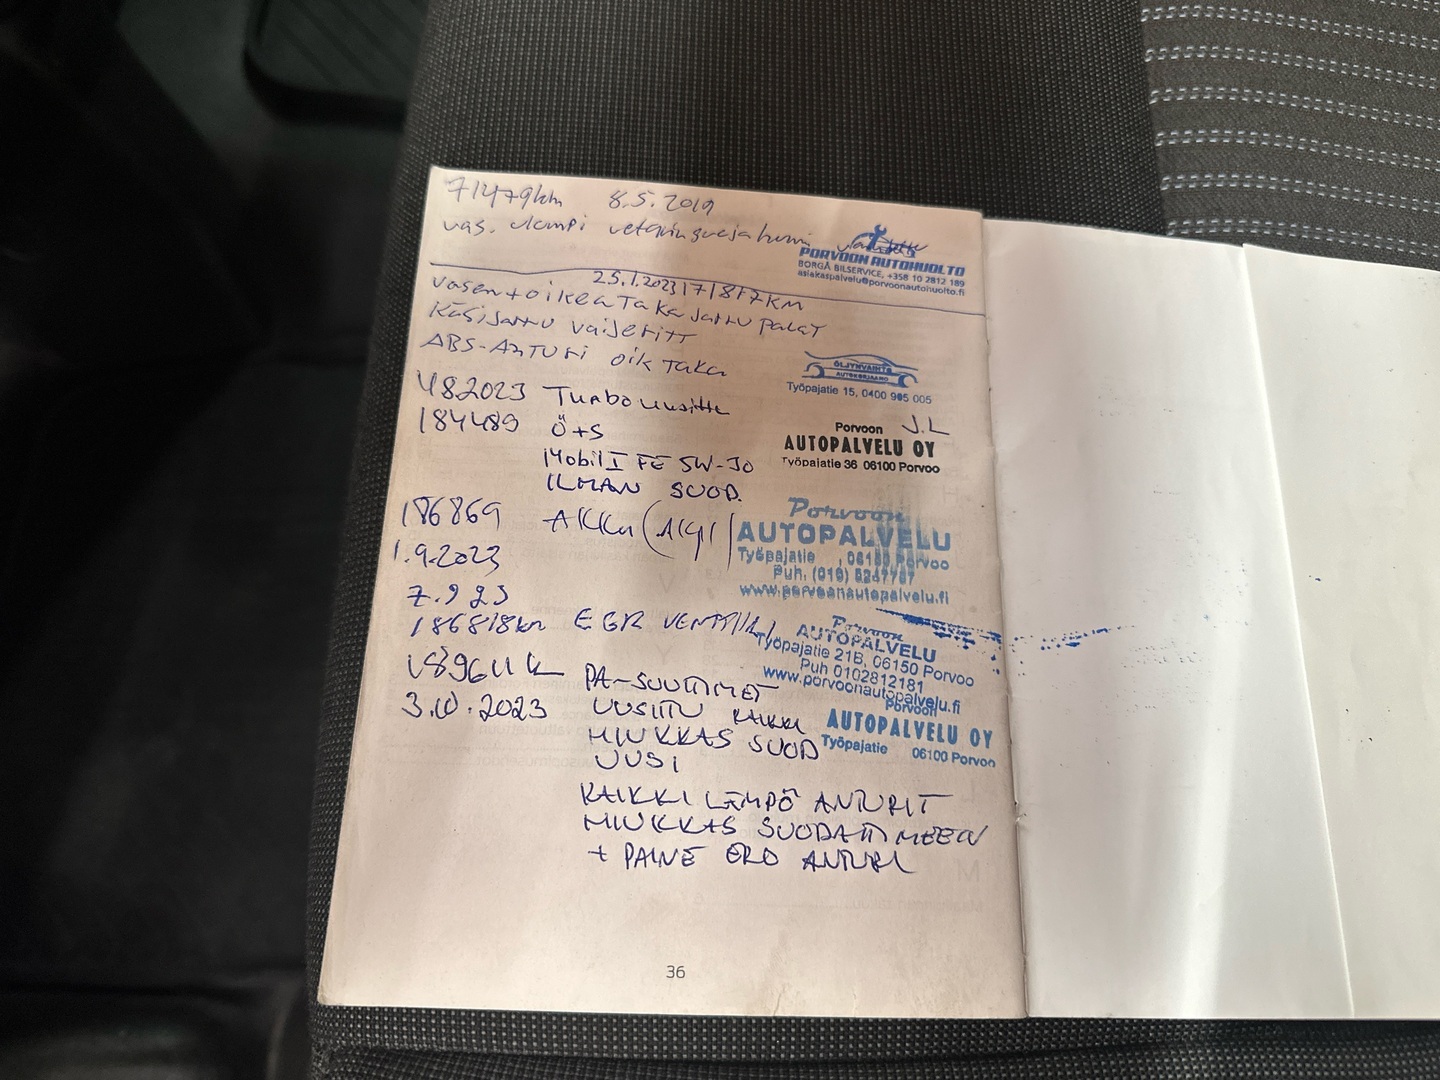 71479km 8.5.2019
vas. ulompi
PORVOON AUTOHUOLTO
BORGÅ BILSERVICE, +358 10 2812 189
asiakaspalvelu@porvoonautohuolto.fi
25.1.2023 171877KM
vasen+oikea Taka Jarru palat
Käsijarru vaijerit
ABS-Anturi oik Taka
ÖLJYNVAIHTO
AUTOKORJAAMO
Työpajatie 15, 0400 995 005
4.8.2023 Turbo uusittu
184489 Ö+S
Mobil 1 FE 5W-30
ILMAN SUOD.
J.L
Porvoon
AUTOPALVELU OY
Työpajatie 36 06100 Porvoo
186869 AKKU
1.9.2023
Porvoon
AUTOPALVELU
Työpajatie , 06150 Porvoo
Puh. (019) 5247787
www.porvoonautopalvelu.fi
7.9 23
186818km EGR VENTTIILI
Porvoon
AUTOPALVELU
Työpajatie 21B, 06150 Porvoo
Puh 0102812181
www.porvoonautopalvelu.fi
PA-SUUTTIMET
3.10.2023 UUSITTU KAIKKI
HIUKKAS SUOD
UUSI
Porvoon
AUTOPALVELU OY
Työpajatie 06100 Porvoo
KAIKKI LÄMPÖ ANTURIT
HIUKKAS SUODATTIMEEN
+ PAINE ERO ANTURI
36